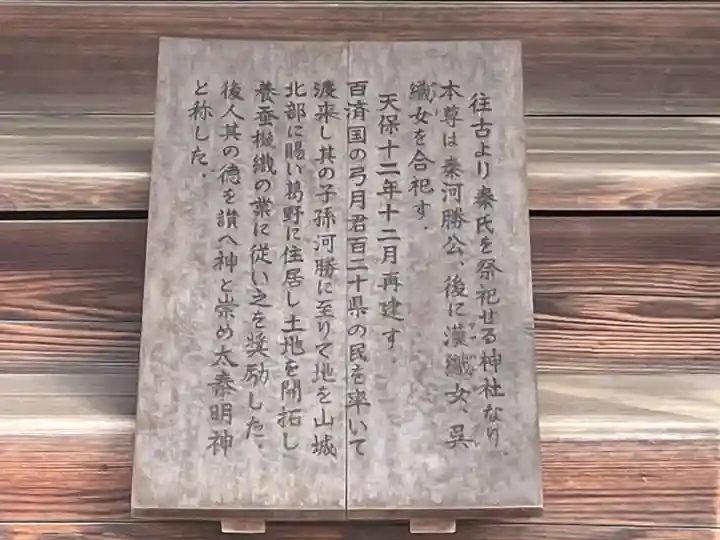 往古より秦氏を祭祀せる神社なり.
本尊は秦河勝公、後に漢織女、呉
織女を合祀す.
天保十二年十二月再建す.
百済国の弓月君百二十県の民を率いて
渡来し其の子孫河勝に至りて地を山城
北部に賜い葛野に住居し土地を開拓し
養蚕機織の業に従い之を奨励した.
後人其の徳を讃へ神と崇め太秦明神
と称した.